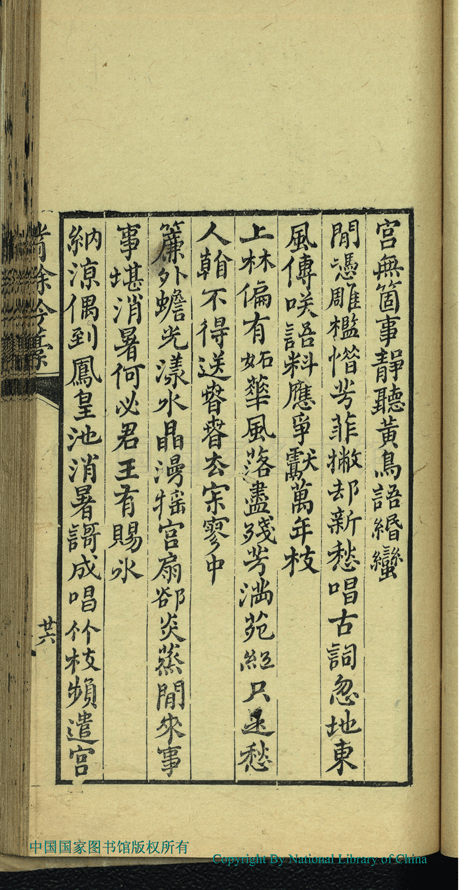 宮無箇事靜聽黃鳥語緡蠻
閒憑雕檻惜芳菲撇却新愁唱古詞忽地東
風傳咲語料應爭獻萬年枝
上林偏有妬華風落盡殘芳滿苑紅只是愁
人翰不得送春春去寂寥中
簾外蟾光漾水晶漫搖宮扇却炎蒸閒來事
事堪消暑何必君王有賜冰
納涼偶到鳳皇池消暑謌成唱竹枝頻遣宮
餘吟藁
廿六
中国国家图书馆版权所有
Copyright By National Library of China